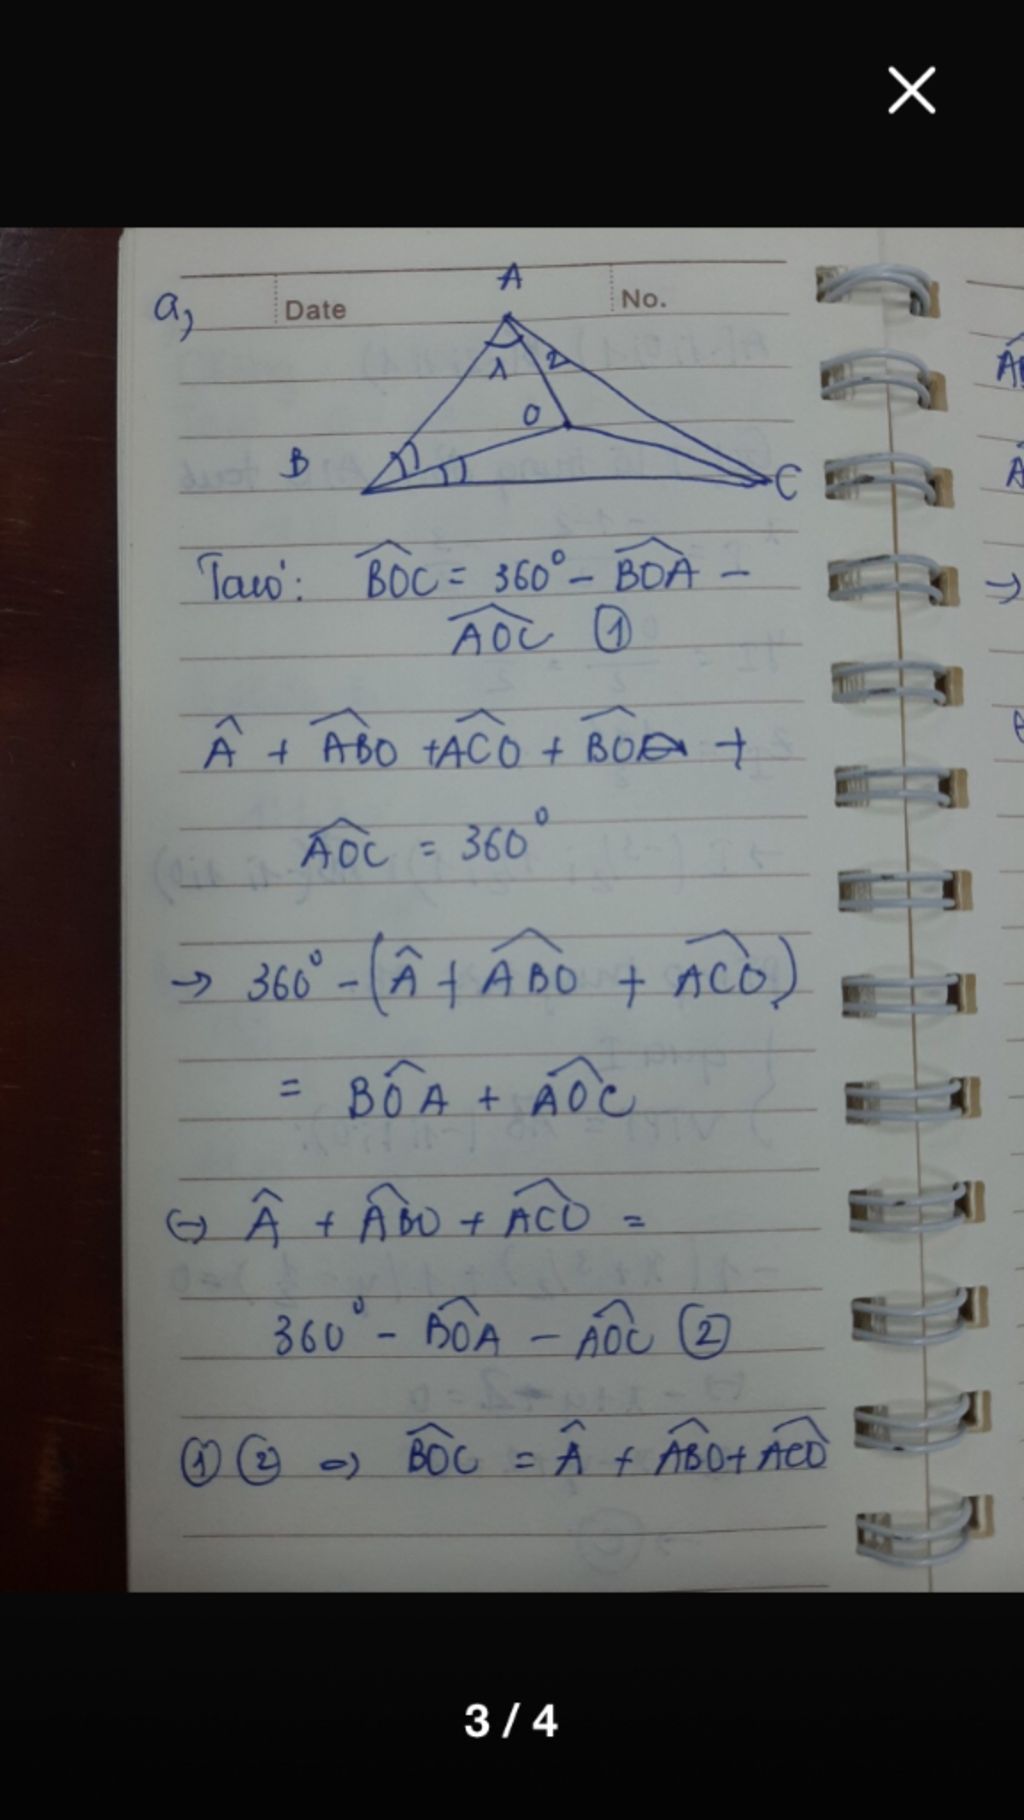 a,
Date
No.
A
1
2
O
B
C
Ta có: BOC = 360° - BOA -
AOC ①
Â + ABO + ACO + BOA +
AOC = 360°
→ 360° - (Â + ABO + ACO)
= BOA + AOC
↔ Â + ABO + ACO =
360° - BOA - AOC ②
① ② ⇒ BOC = Â + ABO + ACO
3 / 4